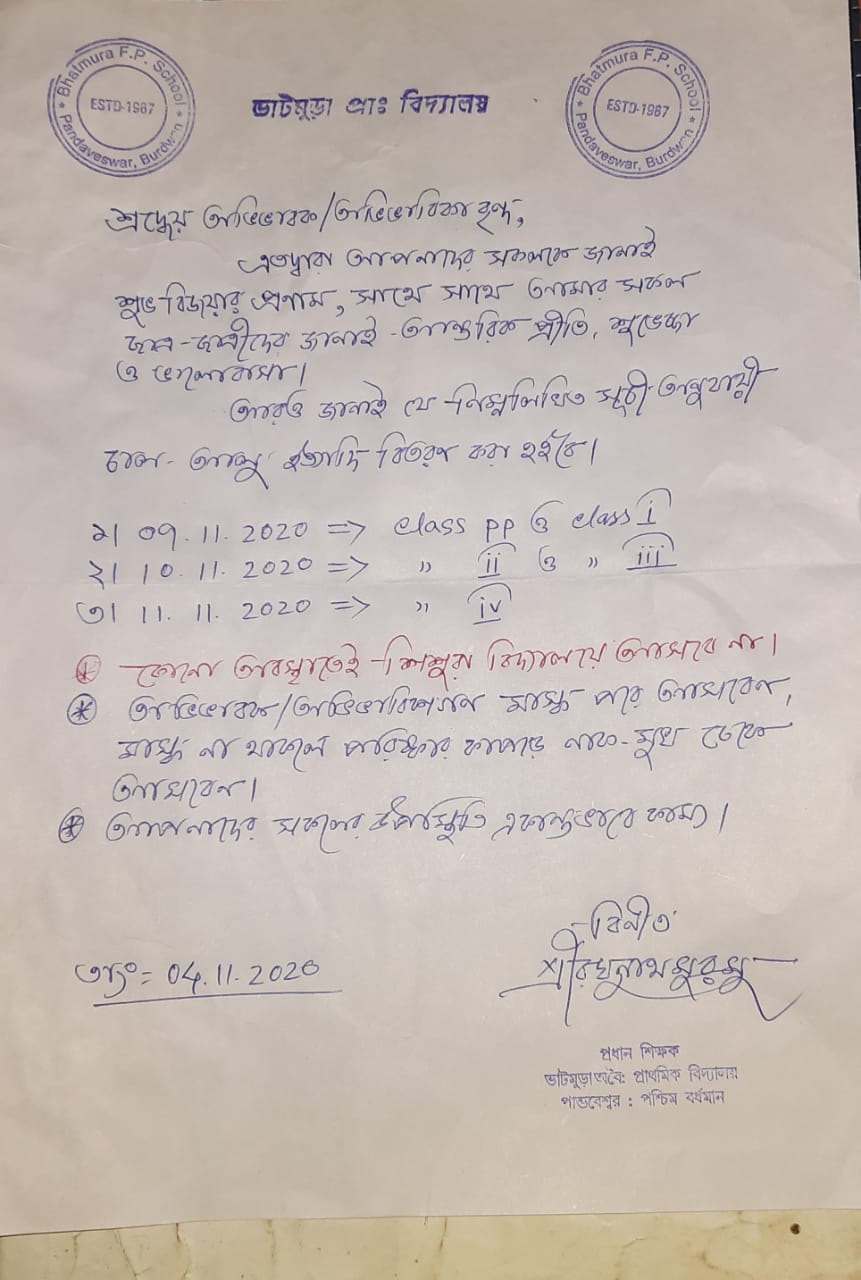 Bhatmura F.P. School
ESTD-1967
Pandaveswar, Burdwan
ভাটমুড়া প্রাঃ বিদ্যালয়
Bhatmura F.P. School
ESTD-1967
Pandaveswar, Burdwan
শ্রদ্ধেয় অভিভাবক/অভিভাবিকা বৃন্দ,
এতদ্বারা আপনাদের সকলকে জানাই
শুভ বিজয়ার প্রণাম, সাথে সাথে আমার সকল
ছাত্র-ছাত্রীদের জানাই আন্তরিক প্রীতি, শুভেচ্ছা
ও ভালোবাসা।
আরও জানাই যে নিম্নলিখিত সূচী অনুযায়ী
চাল-আলু ইত্যাদি বিতরণ করা হইবে।
১। 09.11.2020 => class pp ও class i
২। 10.11.2020 => " ii ও " iii
৩। 11.11.2020 => " iv
* কোনো অবস্থাতেই শিশুরা বিদ্যালয়ে আসবে না।
* অভিভাবক/অভিভাবিকাগণ মাস্ক পরে আসবেন,
মাস্ক না থাকলে পরিষ্কার কাপড়ে নাক-মুখ ঢেকে
আসবেন।
* আপনাদের সকলের উপস্থিতি একান্তভাবে কাম্য।
বিনীত
তাং= 04.11.2020
শ্রী রঘুনাথ মুরমু
প্রধান শিক্ষক
ভাটমুড়া অবৈঃ প্রাথমিক বিদ্যালয়
পান্ডবেশ্বর : পশ্চিম বর্ধমান